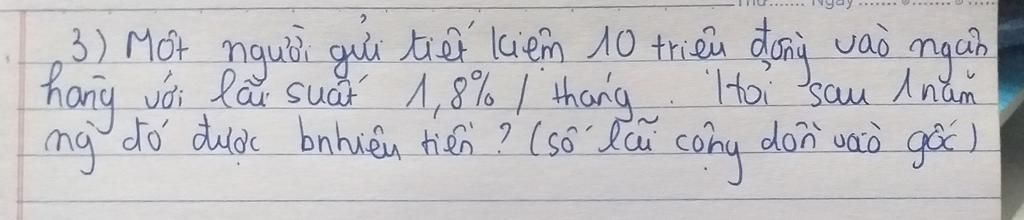 Thứ ........ Ngày
3) Một người gửi tiết kiệm 10 triệu đồng vào ngân
hàng với lãi suất 1,8% / tháng. Hỏi sau 1 năm
ng đó được bnhiêu tiền? (số lãi cộng dồn vào gốc)